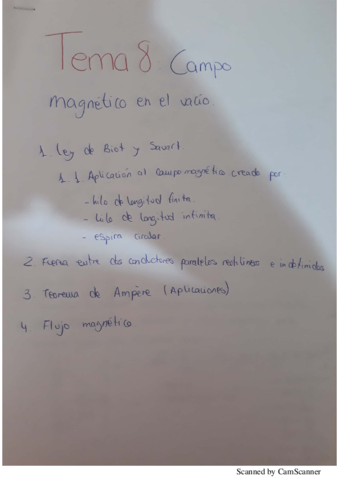 Tema 8 Campo
magnético en el vacío.
1. Ley de Biot y Savart
1.1 Aplicación al campo magnético creado por
- hilo de longitud finita
- hilo de longitud infinita
- espira circular
2 Fuerza entre dos conductores paralelos rectilíneos e indefinidos
3 Teorema de Ampère (Aplicaciones)
4. Flujo magnético
Scanned by CamScanner